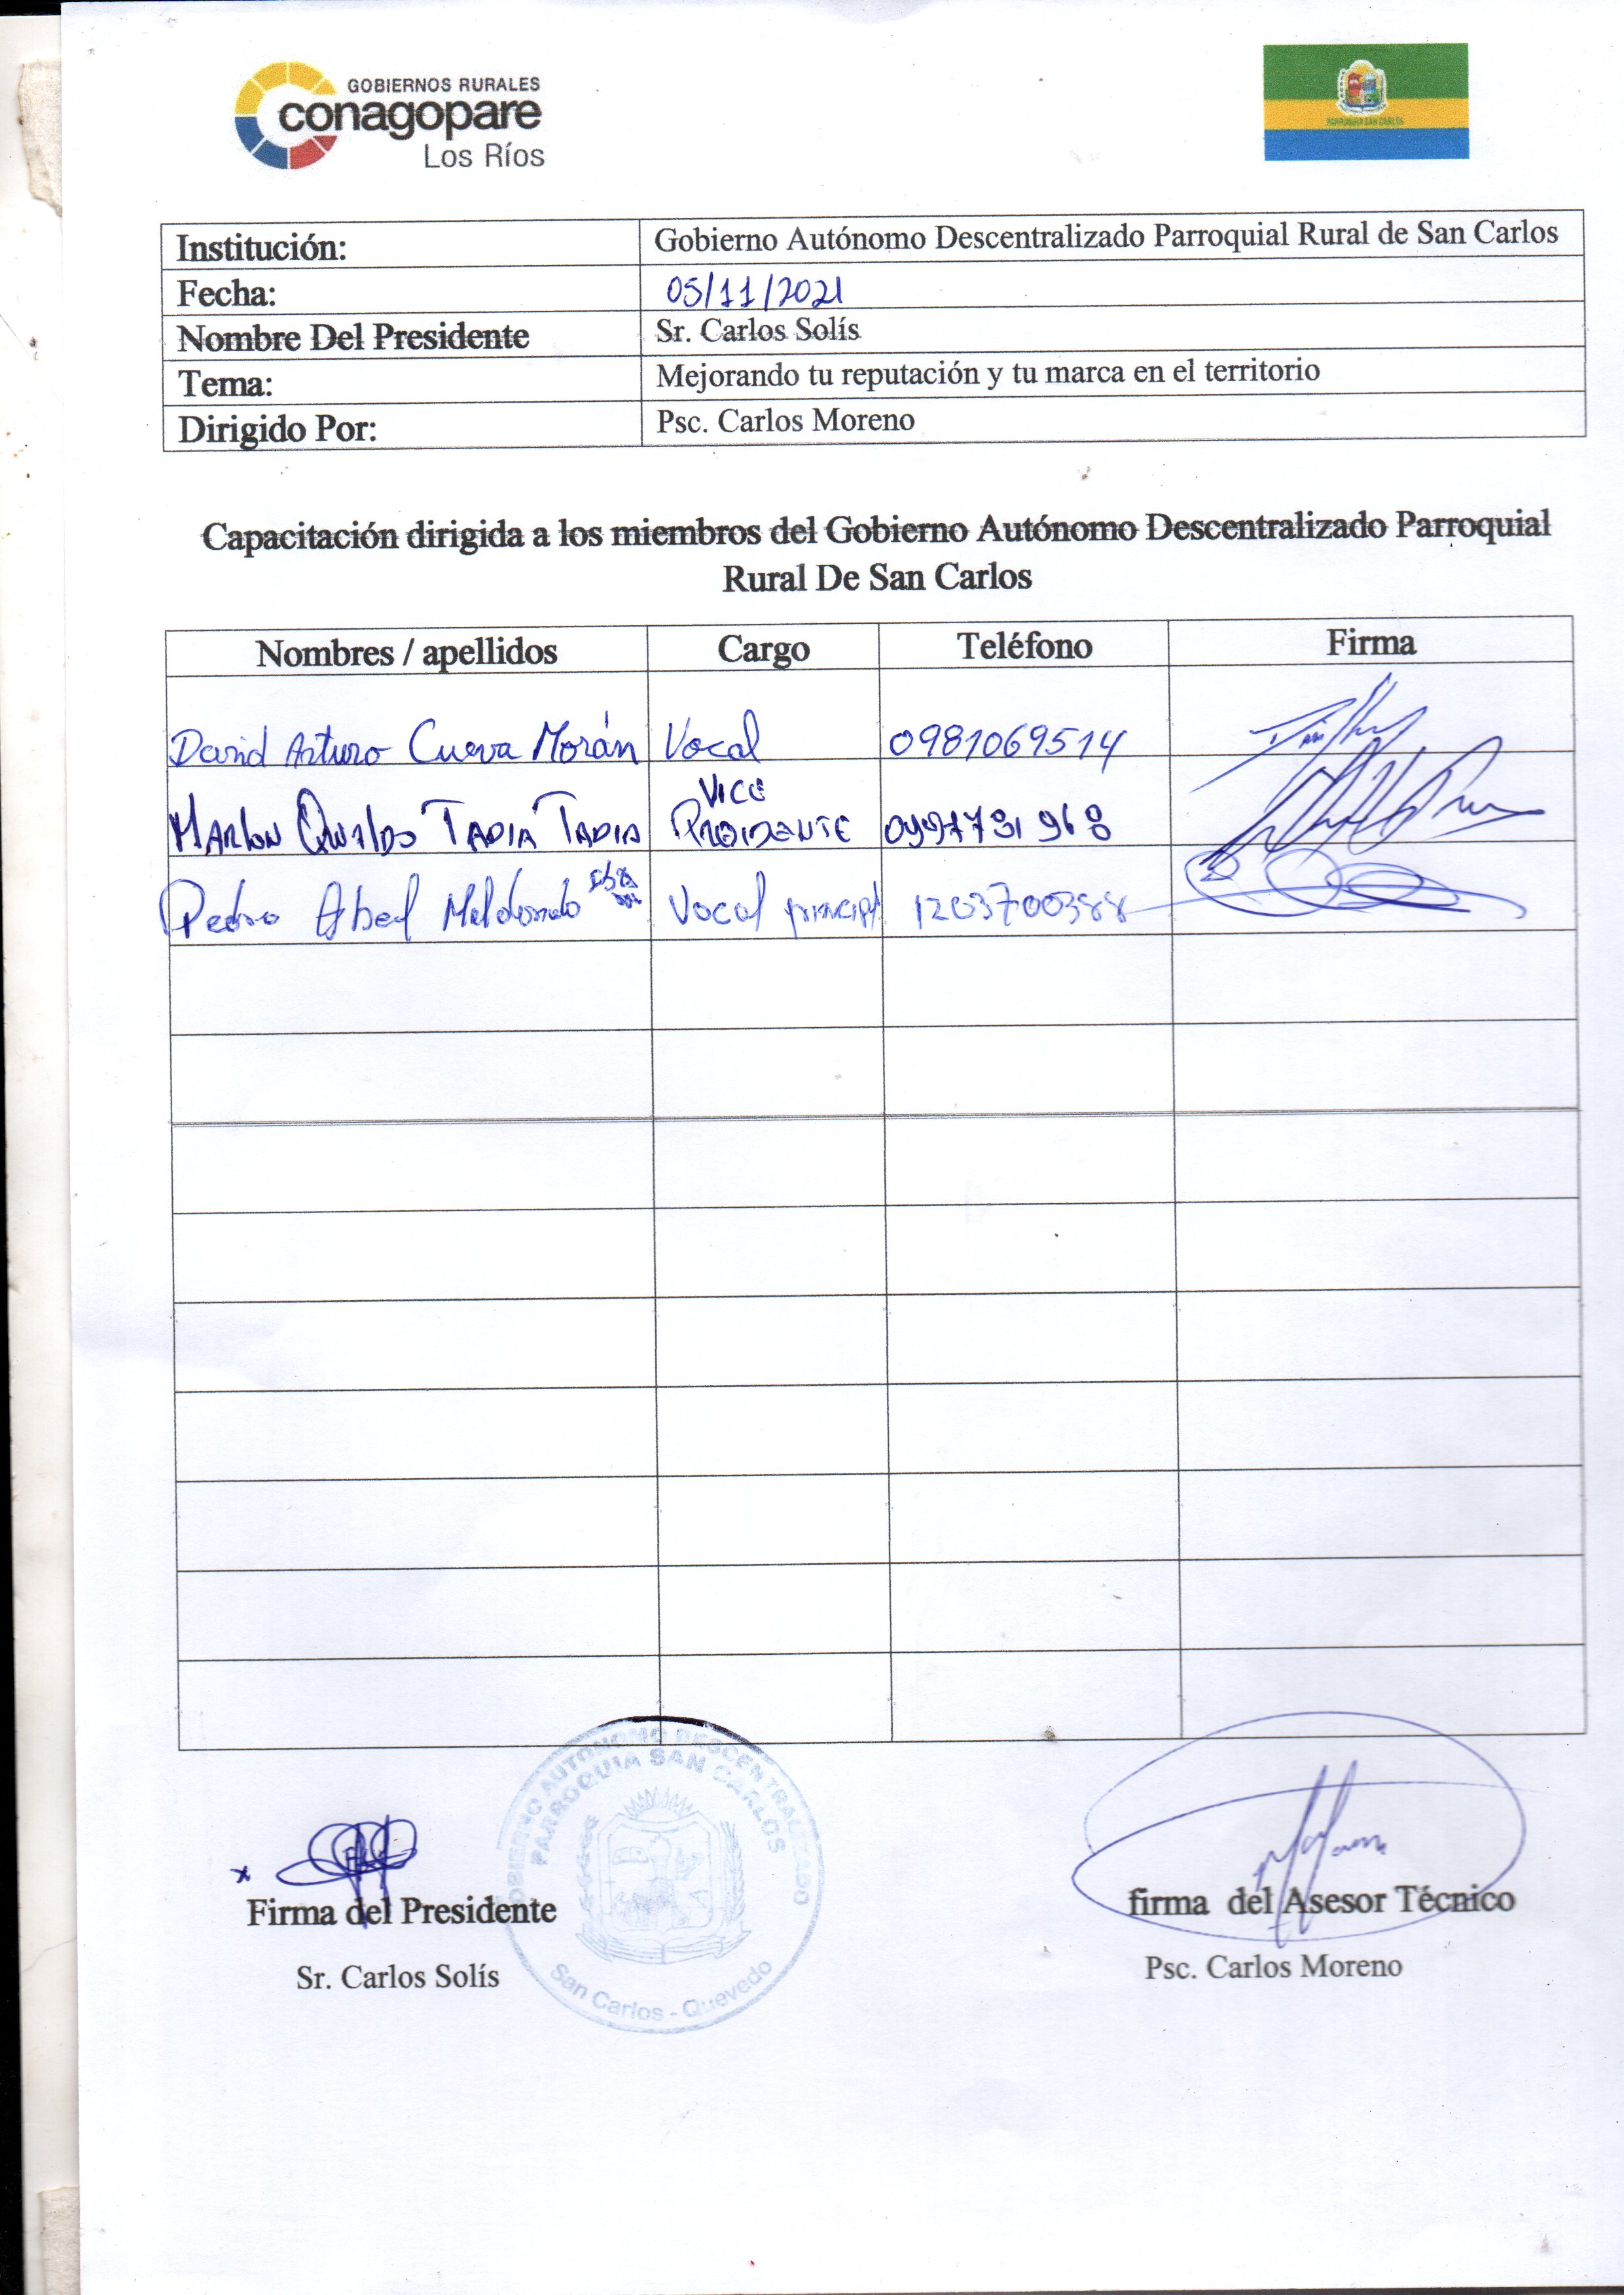 GOBIERNOS RURALES
conagopare
Los Ríos
PARROQUIA SAN CARLOS
Institución: Gobierno Autónomo Descentralizado Parroquial Rural de San Carlos
Fecha: 05/11/2021
Nombre Del Presidente Sr. Carlos Solís
Tema: Mejorando tu reputación y tu marca en el territorio
Dirigido Por: Psc. Carlos Moreno
Capacitación dirigida a los miembros del Gobierno Autónomo Descentralizado Parroquial
Rural De San Carlos
Nombres / apellidos Cargo Teléfono Firma
David Arturo Cueva Morán Vocal 0981069514
Vice
Marlon TAPIA TAPIA PRESIDENTE 0997731968
Pedro Abel Maldonado Vocal principal
GOBIERNO AUTONOMO DESCENTRALIZADO
PARROQUIA SAN CARLOS
San Carlos - Quevedo
Firma del Presidente firma del Asesor Técnico
Sr. Carlos Solís Psc. Carlos Moreno